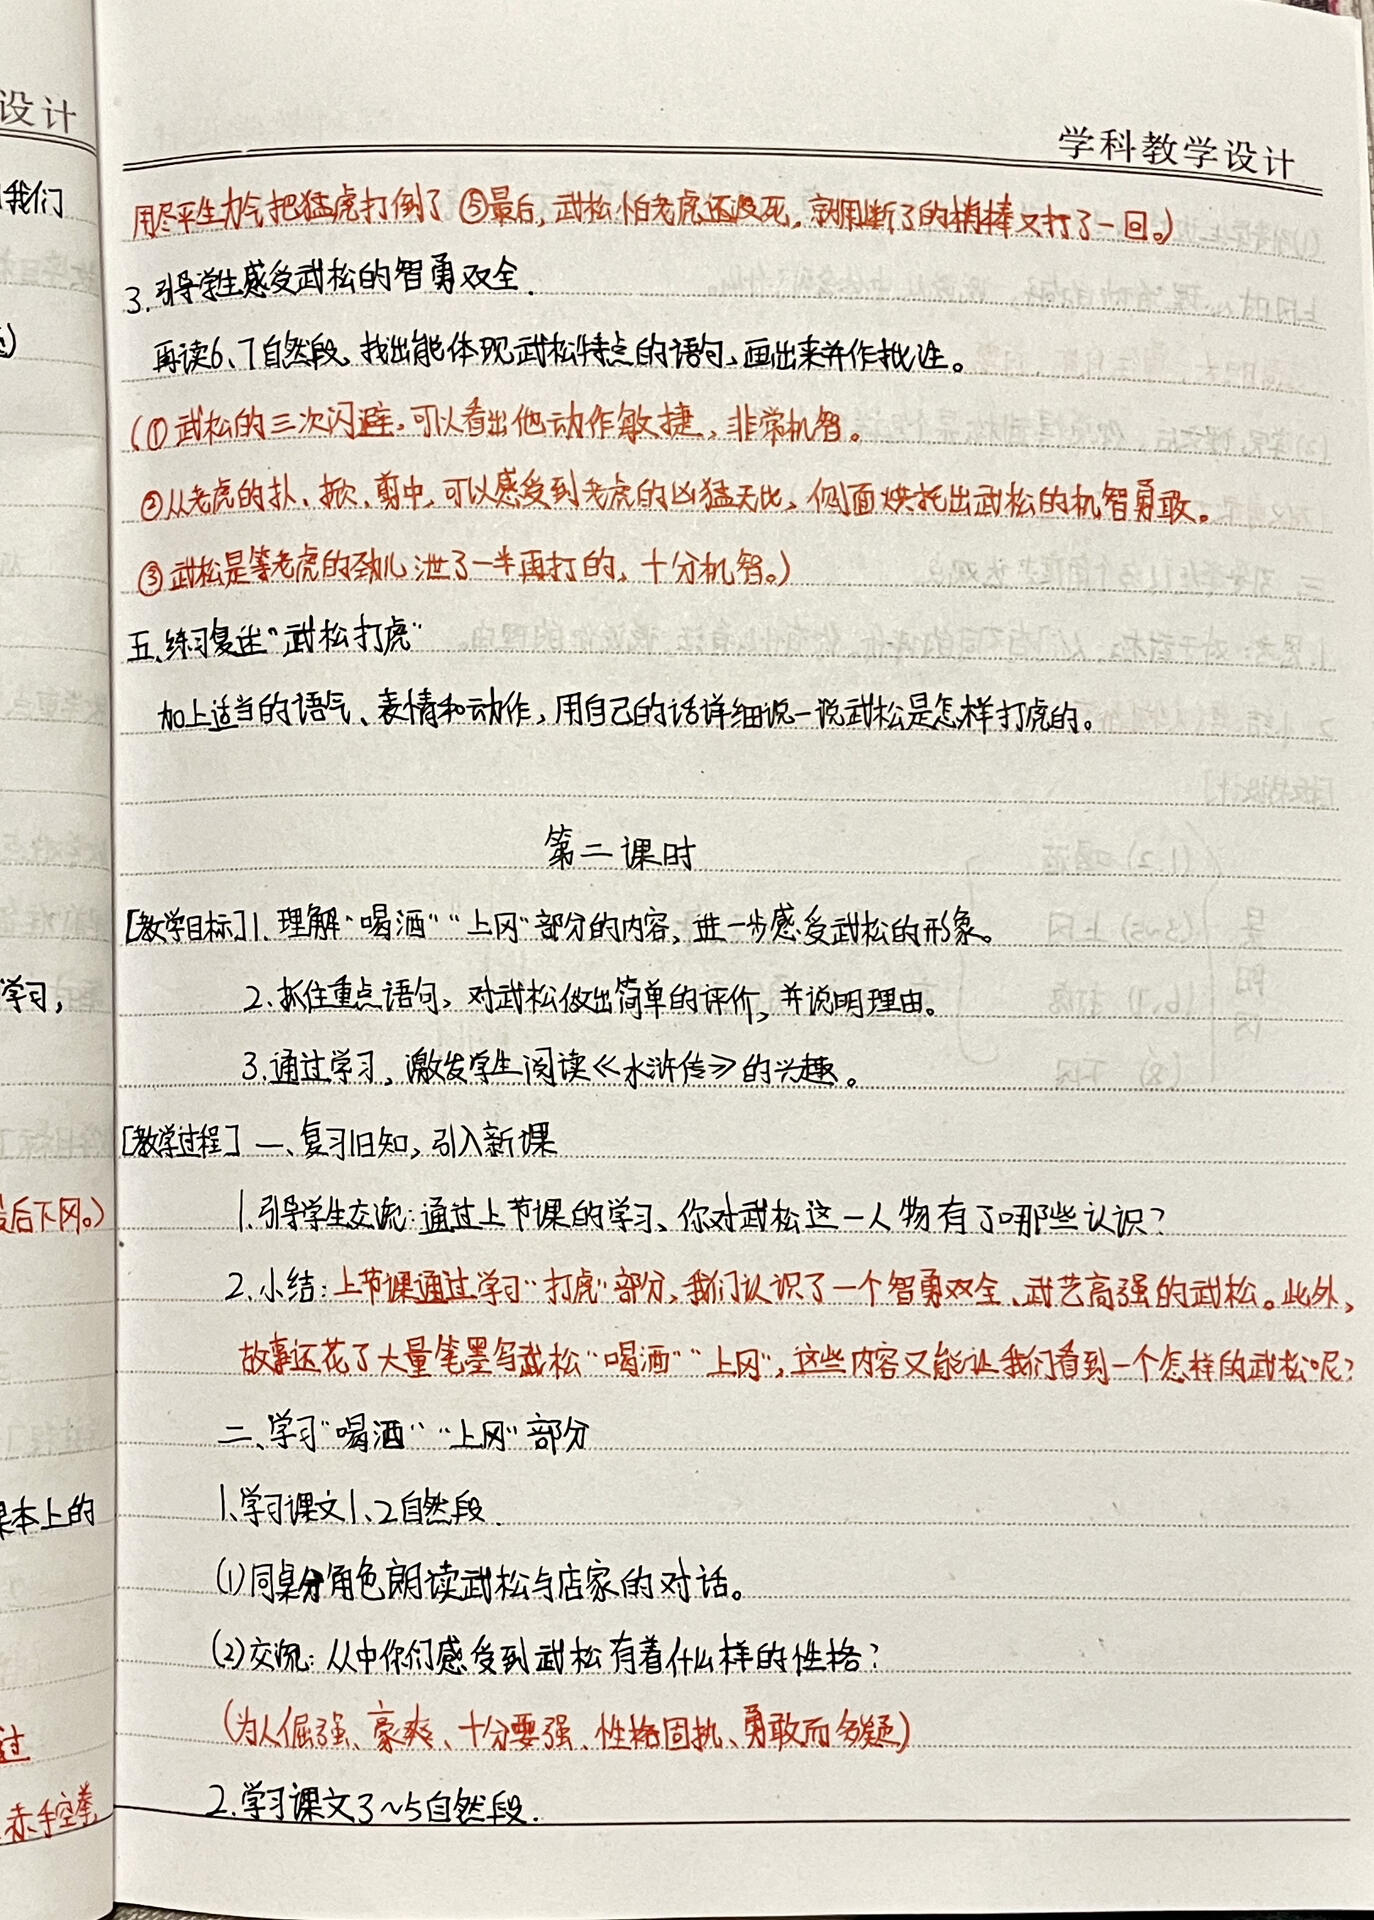 设计
学科教学设计
我们
学习，
最后下冈。）
课本上的
过
赤手空拳，
用尽平生力气把猛虎打倒了 ⑤最后，武松怕老虎还没死，就用断了的梢棒又打了一回。）
3.引导学生感受武松的智勇双全.
再读6、7自然段，找出能体现武松特点的语句，画出来并作批注。
（①武松的三次闪避，可以看出他动作敏捷，非常机智。
②从老虎的扑、掀、剪中，可以感受到老虎的凶猛无比，侧面烘托出武松的机智勇敢。
③武松是等老虎的劲儿泄了一半再打的，十分机智。）
五、练习复述“武松打虎”
加上适当的语气、表情和动作，用自己的话详细说一说武松是怎样打虎的。
第二课时
[教学目标]1.理解“喝酒”“上冈”部分的内容，进一步感受武松的形象。
2.抓住重点语句，对武松做出简单的评价，并说明理由。
3.通过学习，激发学生阅读《水浒传》的兴趣。
[教学过程] 一、复习旧知，引入新课
1.引导学生交流：通过上节课的学习、你对武松这一人物有了哪些认识？
2.小结：上节课通过学习“打虎”部分，我们认识了一个智勇双全、武艺高强的武松。此外，
故事还花了大量笔墨写武松“喝酒”“上冈”，这些内容又能让我们看到一个怎样的武松呢？
二、学习“喝酒”“上冈”部分
1、学习课文1、2自然段.
（1）同桌分角色朗读武松与店家的对话。
（2）交流：从中你们感受到武松有着什么样的性格？
（为人倔强、豪爽、十分要强、性格固执、勇敢而多疑）
2.学习课文3～5自然段.